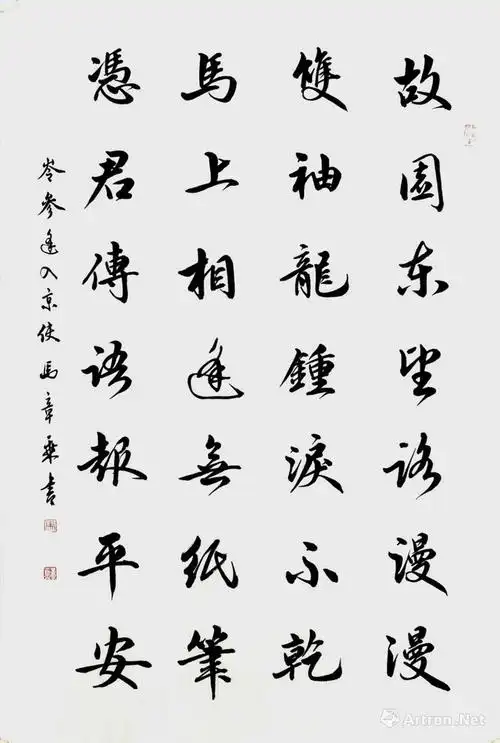 故園東望路漫漫
雙袖龍鍾淚不乾
馬上相逢無紙筆
憑君傳語報平安
岑參逢入京使 馬章乘書
Artron.Net